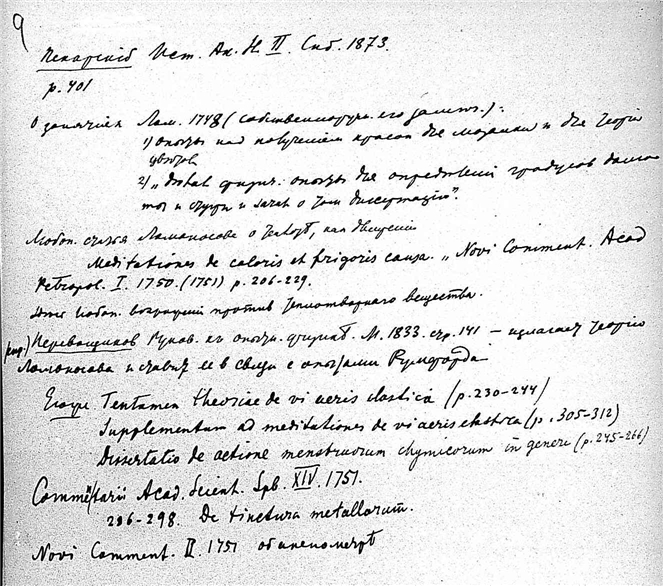 9
Пекарскій Ист. Ак. Н. II. Спб. 1873.
p. 401
О занятіях Лом. 1748 (собственноручн. его замѣтк.):
1) опыты над получением красок для мозаики и для теоріи
цвѣтов
2) „ физич. опыты для определеній градусов
и и о том диссертацій".
Любоп. статья Ломоносова о теплотѣ, как движеніи
Meditationes de caloris et frigoris causa. „Novi Comment. Acad
Petropol. I. 1750. (1751) p. 206-229.
любоп. возраженія против теплотворнаго вещества.
Перевощиков Руков. къ опытн. физикѣ. М. 1833. стр. 141 – излагает теорію
Ломоносова и ставит ее в связи с опытами Румфорда
Tentamen theoriae de vi aeris elastica (p. 230-244)
Supplementum ad meditationes de vi aeris elastica (p. 305-312)
Dissertatio de actione menstruorum chymicorum in genere (p. 245-266)
Commentarii Acad. Scient. Spb. XIV. 1751.
286-298. De tinctura metallorum.
Novi Comment. II. 1751 об